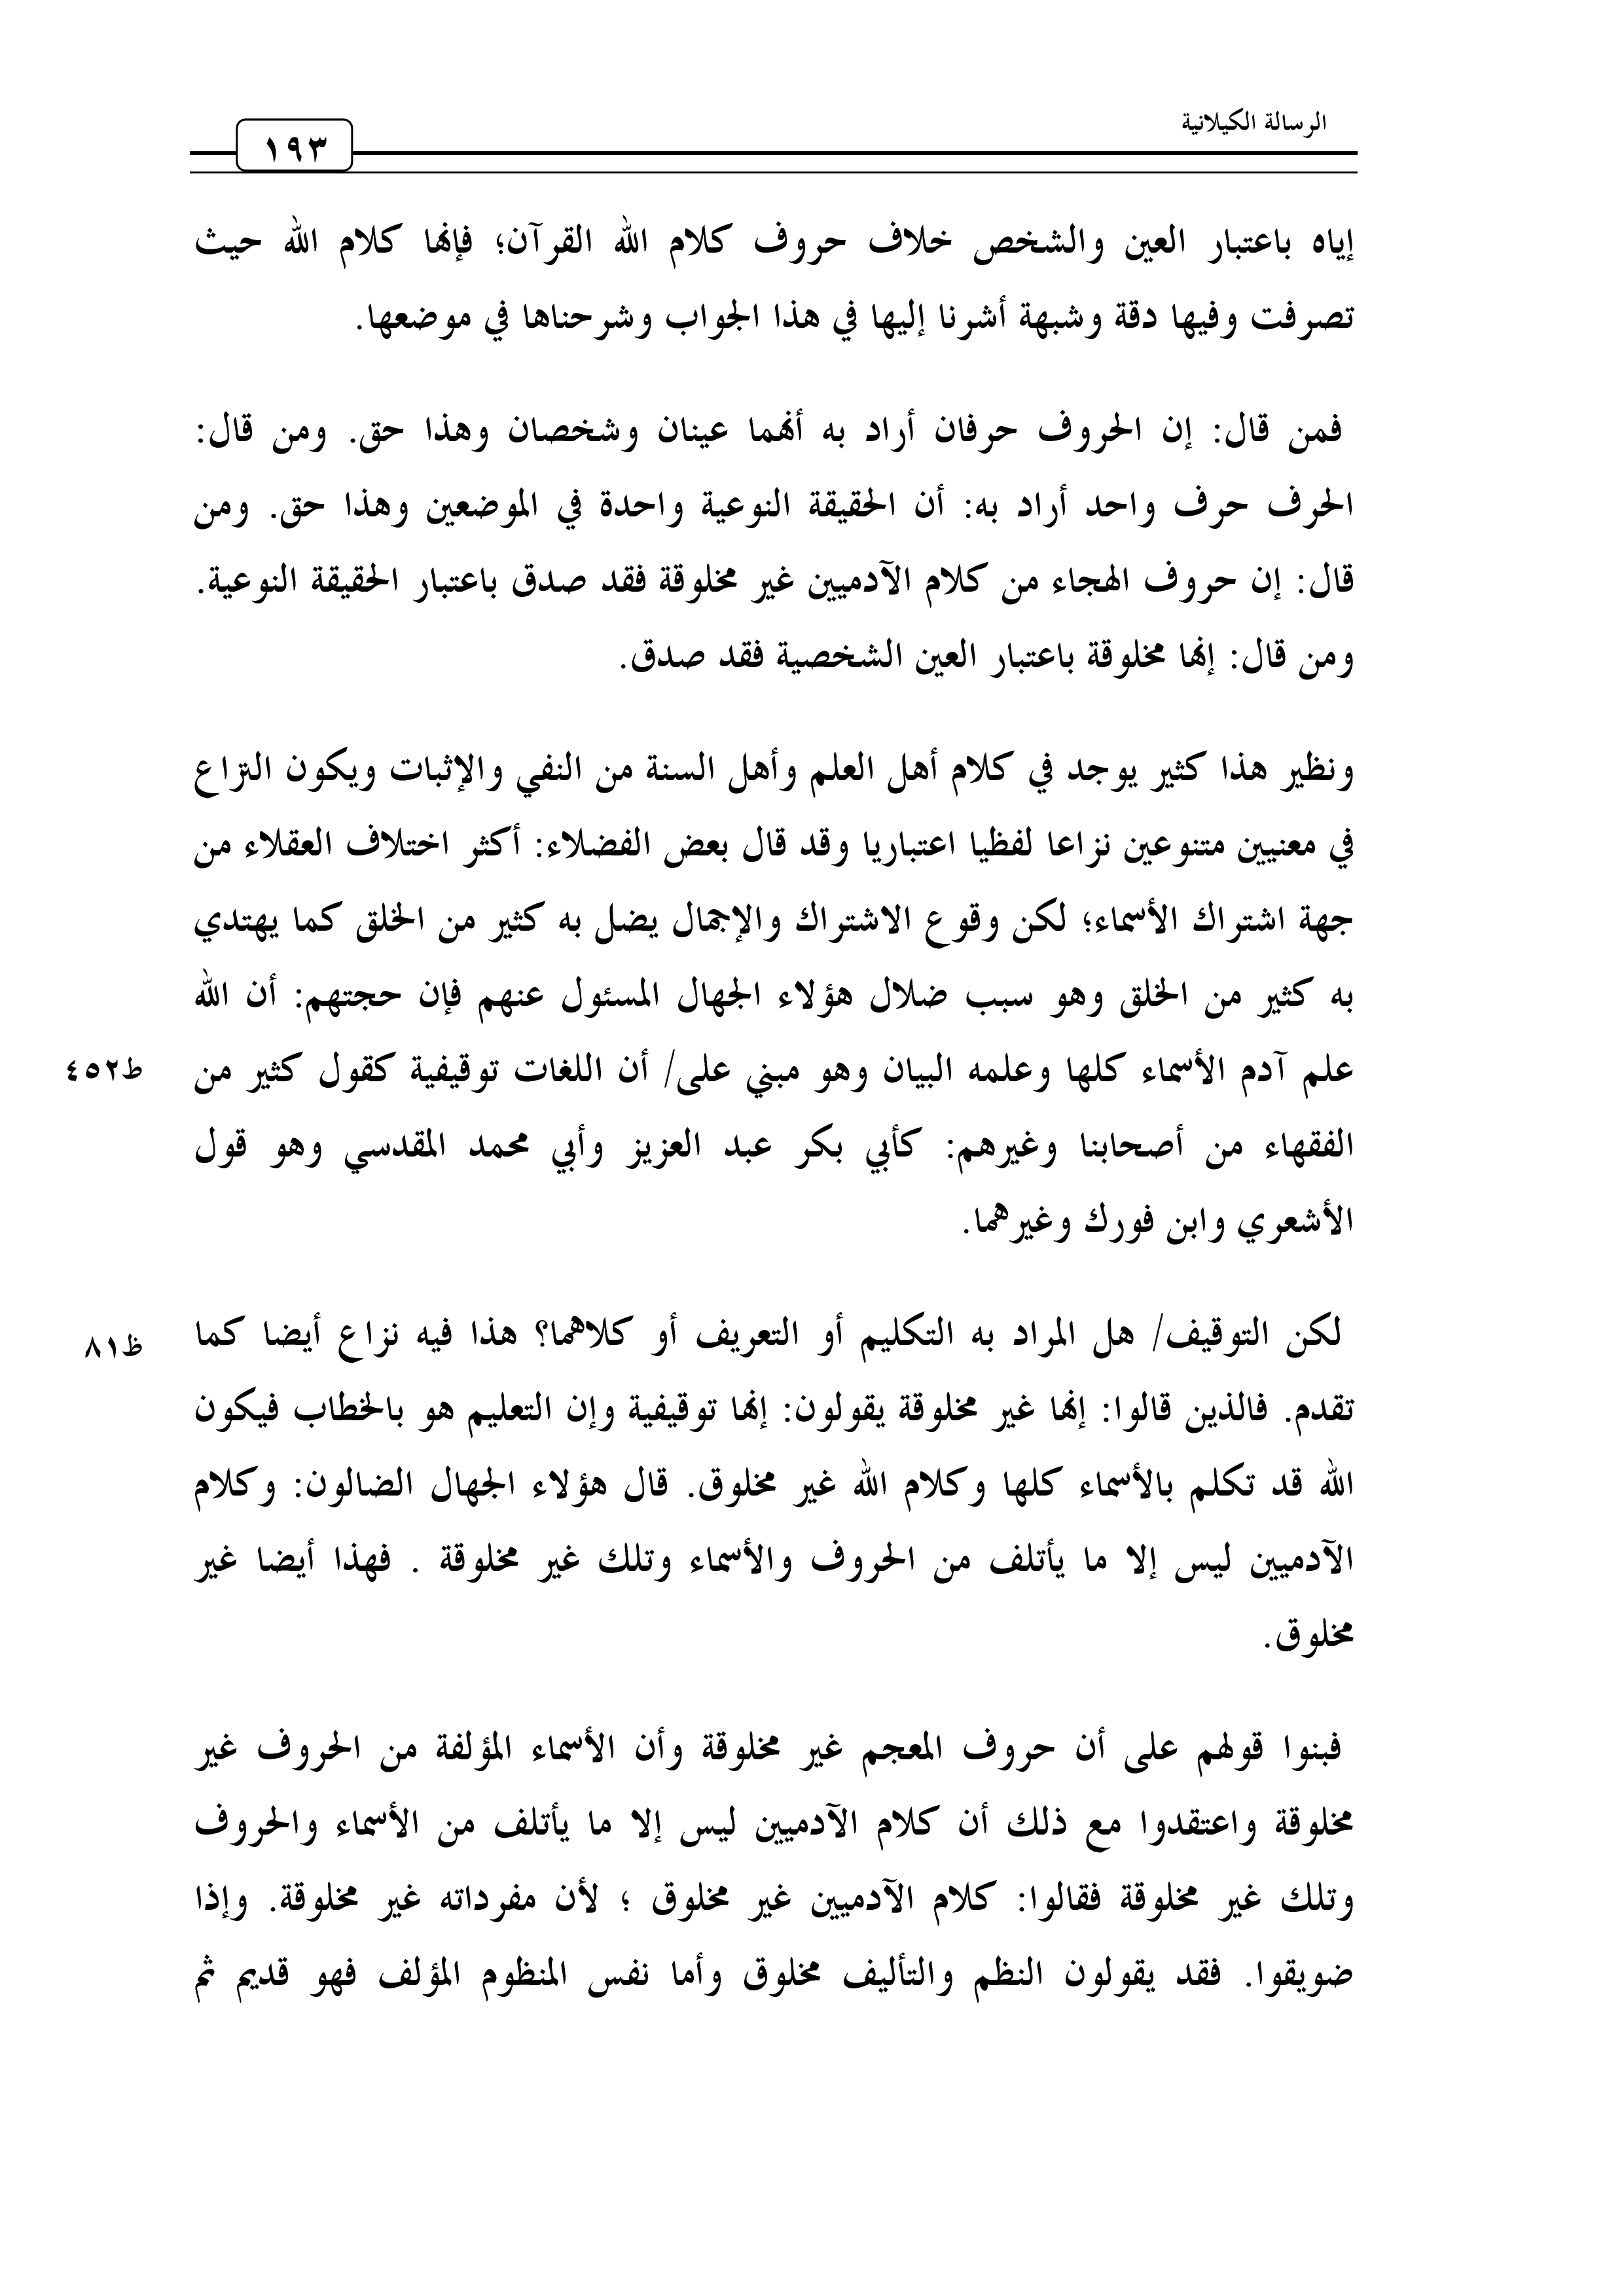 الرسالة الكيلانية
١٩٣
إياه باعتبار العين والشخص خلاف حروف كلام الله القرآن؛ فإنها كلام الله حيث
تصرفت وفيها دقة وشبهة أشرنا إليها في هذا الجواب وشرحناها في موضعها.
فمن قال: إن الحروف حرفان أراد به أنهما عينان وشخصان وهذا حق. ومن قال:
الحرف حرف واحد أراد به: أن الحقيقة النوعية واحدة في الموضعين وهذا حق. ومن
قال: إن حروف الهجاء من كلام الآدميين غير مخلوقة فقد صدق باعتبار الحقيقة النوعية.
ومن قال: إنها مخلوقة باعتبار العين الشخصية فقد صدق.
ونظير هذا كثير يوجد في كلام أهل العلم وأهل السنة من النفي والإثبات ويكون النزاع
في معنيين متنوعين نزاعا لفظيا اعتباريا وقد قال بعض الفضلاء: أكثر اختلاف العقلاء من
جهة اشتراك الأسماء؛ لكن وقوع الاشتراك والإجمال يضل به كثير من الخلق كما يهتدي
به كثير من الخلق وهو سبب ضلال هؤلاء الجهال المسئول عنهم فإن حجتهم: أن الله
علم آدم الأسماء كلها وعلمه البيان وهو مبني على/ أن اللغات توقيفية كقول كثير من
ط٤٥٢
الفقهاء من أصحابنا وغيرهم: كأبي بكر عبد العزيز وأبي محمد المقدسي وهو قول
الأشعري وابن فورك وغيرهما.
لكن التوقيف/ هل المراد به التكليم أو التعريف أو كلاهما؟ هذا فيه نزاع أيضا كما
ظ٨١
تقدم. فالذين قالوا: إنها غير مخلوقة يقولون: إنها توقيفية وإن التعليم هو بالخطاب فيكون
الله قد تكلم بالأسماء كلها وكلام الله غير مخلوق. قال هؤلاء الجهال الضالون: وكلام
الآدميين ليس إلا ما يأتلف من الحروف والأسماء وتلك غير مخلوقة . فهذا أيضا غير
مخلوق.
فبنوا قولهم على أن حروف المعجم غير مخلوقة وأن الأسماء المؤلفة من الحروف غير
مخلوقة واعتقدوا مع ذلك أن كلام الآدميين ليس إلا ما يأتلف من الأسماء والحروف
وتلك غير مخلوقة فقالوا: كلام الآدميين غير مخلوق ؛ لأن مفرداته غير مخلوقة. وإذا
ضويقوا. فقد يقولون النظم والتأليف مخلوق وأما نفس المنظوم المؤلف فهو قديم ثم